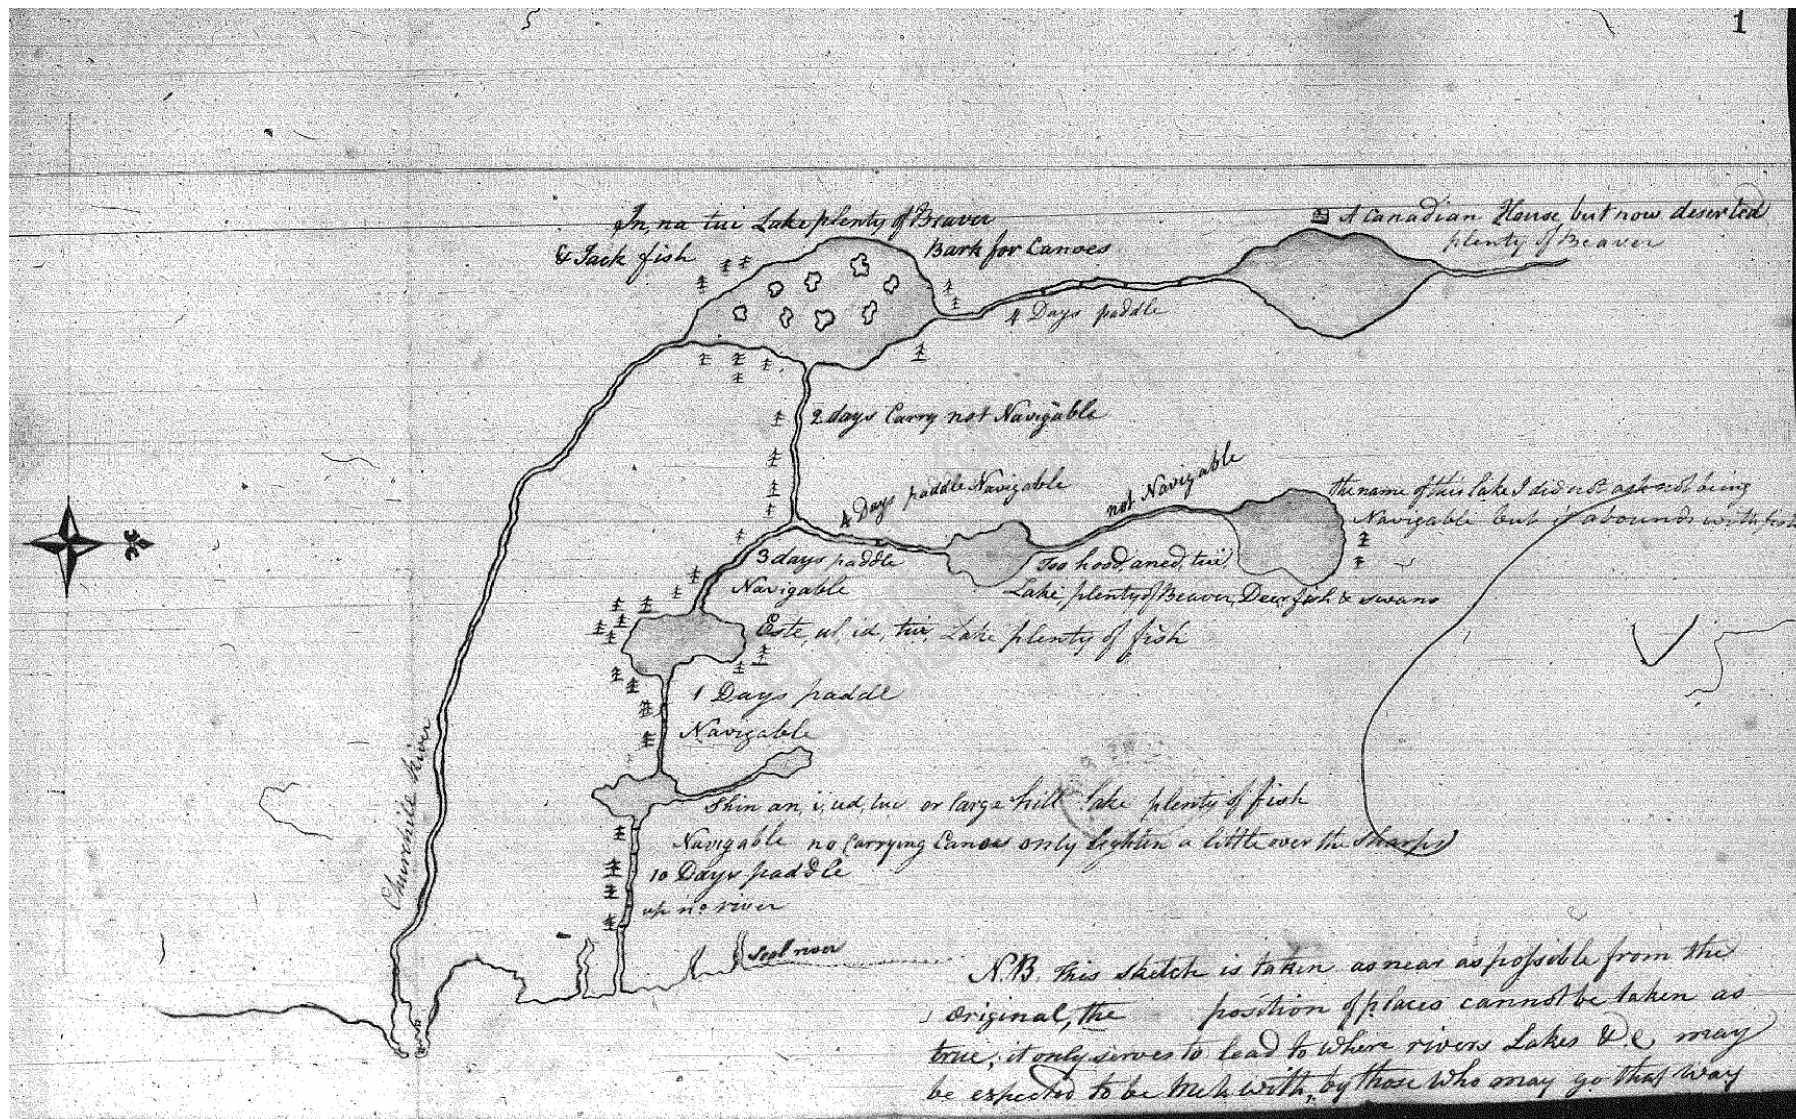 1
In, na tui Lake plenty of Beaver
& Jack fish
Bark for Canoes
A Canadian House but now deserted
plenty of Beaver
4 Days paddle
2 days Carry not Navigable
4 Days paddle Navigable
not Navigable
the name of this lake I did not ask not being
Navigable but it abounds with fish
3 days paddle
Navigable
Too hood, aned, tui,
Lake, plenty of Beaver, Deer, fish & swans
Este, ul, id, tui, Lake plenty of fish
1 Days paddle
Navigable
Shin an, i, ud, tui or large hill lake plenty of fish
Navigable no Carrying Canoes only lighten a little over the Sharps
10 Days paddle
up river
Churchill River
Seal river
N.B. This sketch is taken as near as possible from the
original, the position of places cannot be taken as
true, it only serves to lead to where rivers Lakes &c may
be expected to be with, by those who may go that way